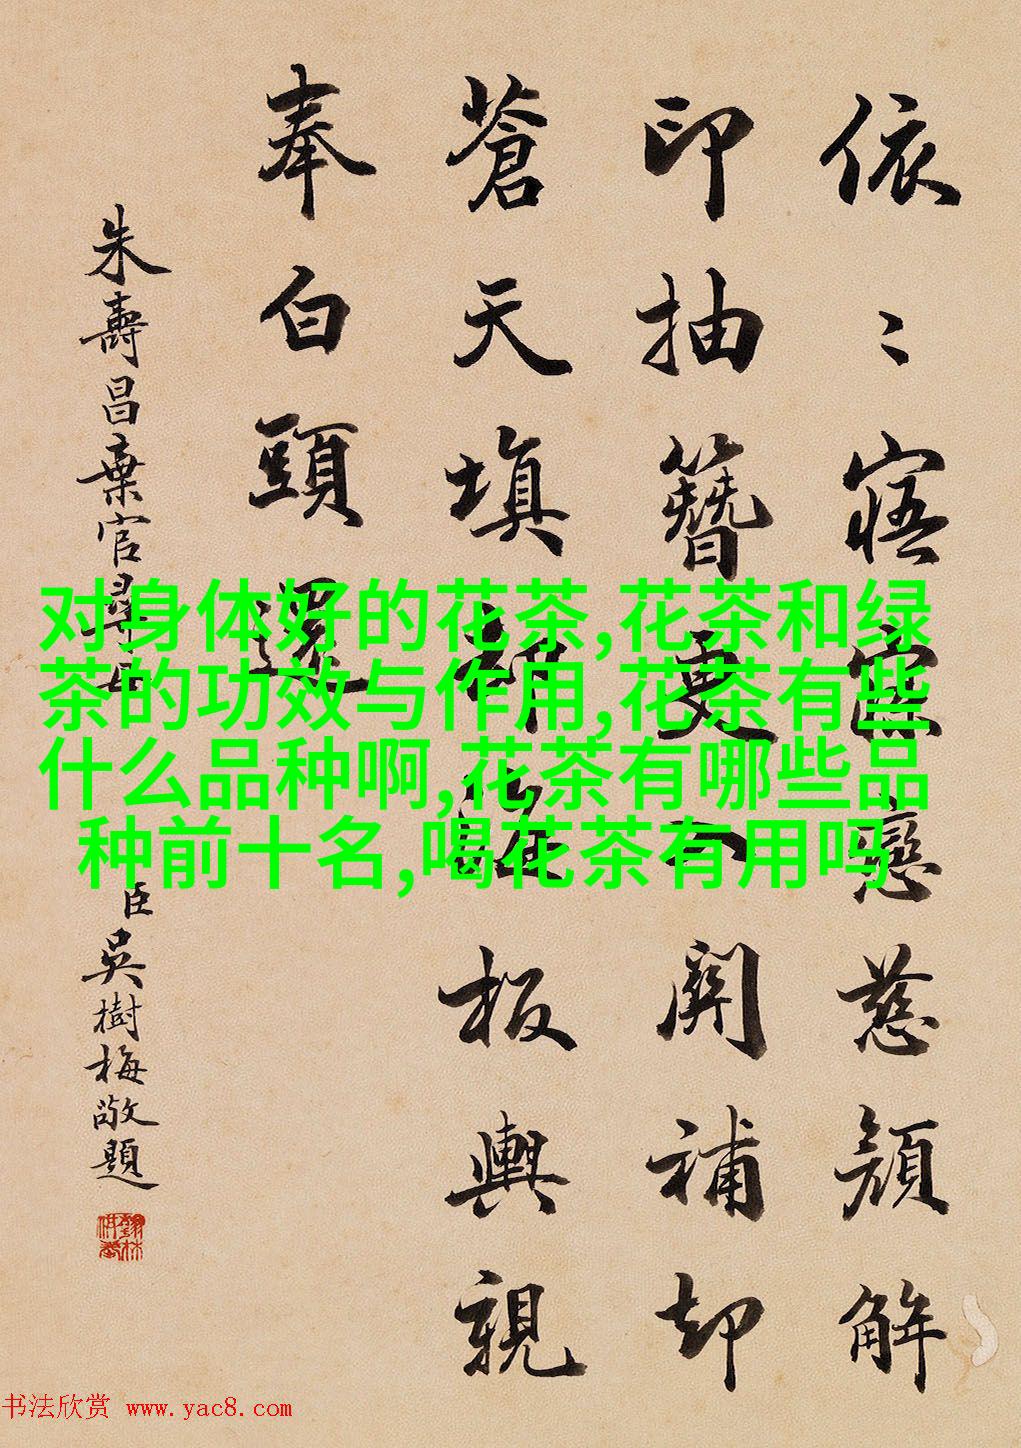 依〻寤寐戀慈顏解
印抽簪更入關補却
蒼天填却海板輿親
奉白頭還
朱壽昌棄官尋母
臣吳樹梅敬題
对身体好的花茶,花茶和绿
茶的功效与作用,花茶有些
什么品种啊,花茶有哪些品
种前十名,喝花茶有用吗
书法欣赏 www.yac8.com